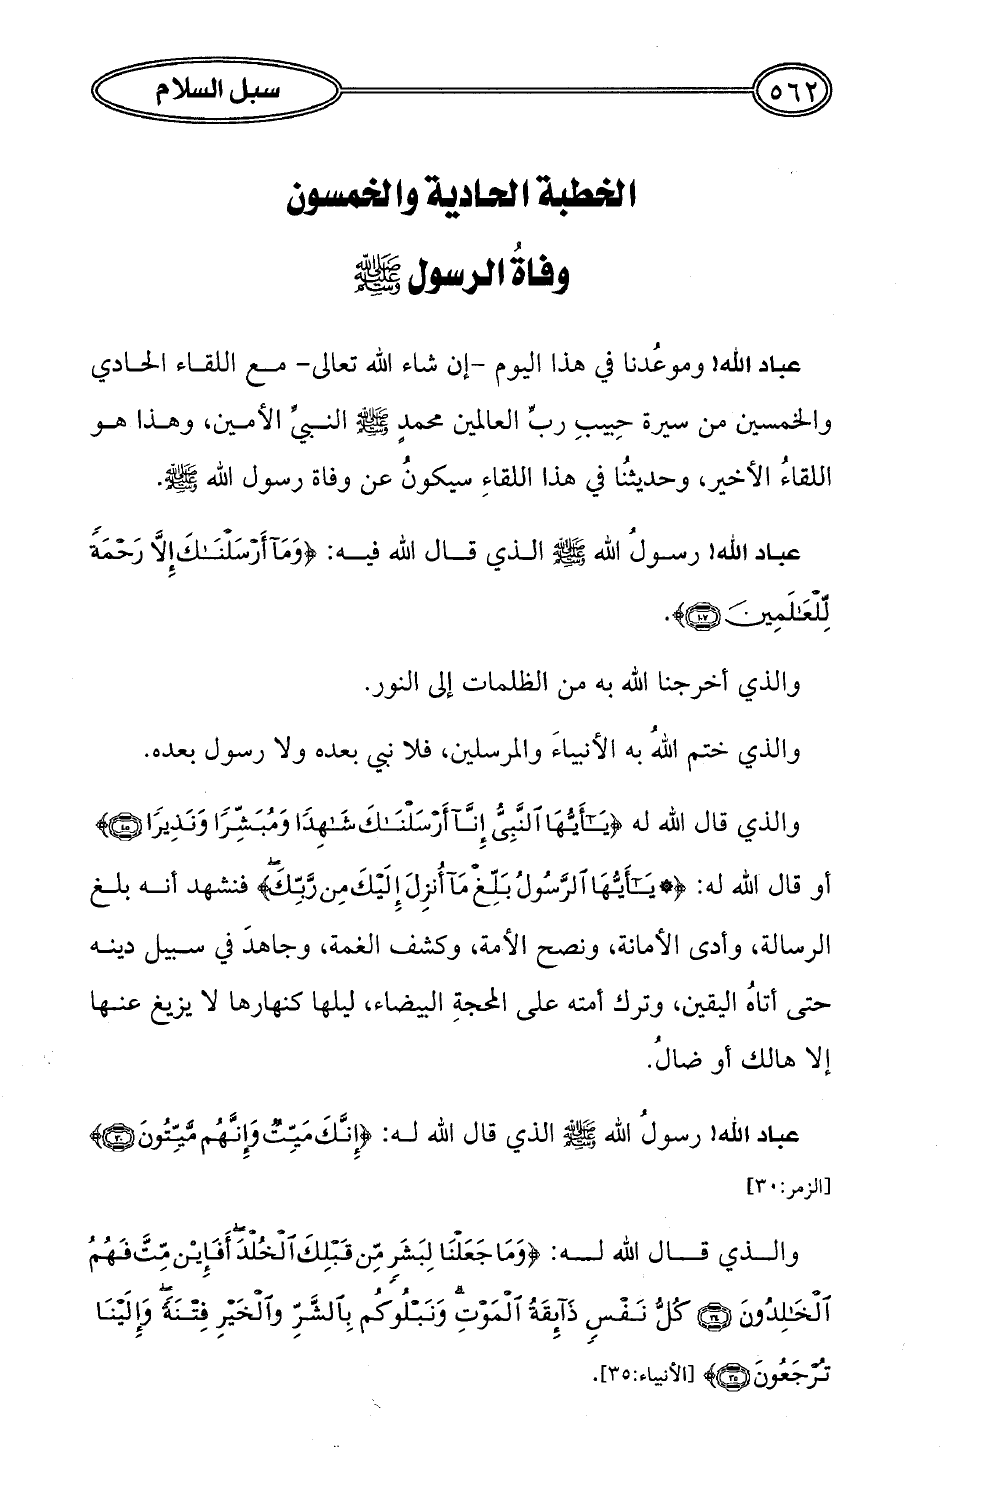 ٥٦٢
سبل السلام
الخطبة الحادية والخمسون
وفاةُ الرسول ﷺ
عباد الله! وموعُدنا في هذا اليوم -إن شاء الله تعالى- مع اللقاء الحادي
والخمسين من سيرة حبيبِ ربِّ العالمين محمدٍ ﷺ النبيِّ الأمين، وهذا هو
اللقاءُ الأخير، وحديثُنا في هذا اللقاءِ سيكونُ عن وفاة رسول الله ﷺ.
عباد الله! رسولُ الله ﷺ الذي قال الله فيه: ﴿وَمَآ أَرْسَلْنَـٰكَ إِلَّا رَحْمَةً
لِّلْعَـٰلَمِينَ ١٠٧﴾.
والذي أخرجنا الله به من الظلمات إلى النور.
والذي ختم اللهُ به الأنبياءَ والمرسلين، فلا نبي بعده ولا رسول بعده.
والذي قال الله له ﴿يَـٰٓأَيُّهَا ٱلنَّبِىُّ إِنَّآ أَرْسَلْنَـٰكَ شَـٰهِدًا وَمُبَشِّرًا وَنَذِيرًا ٤٥﴾
أو قال الله له: ﴿۞ يَـٰٓأَيُّهَا ٱلرَّسُولُ بَلِّغْ مَآ أُنزِلَ إِلَيْكَ مِن رَّبِّكَ ۖ﴾ فنشهد أنه بلغ
الرسالة، وأدى الأمانة، ونصح الأمة، وكشف الغمة، وجاهدَ في سبيل دينه
حتى أتاهُ اليقين، وترك أمته على المحجةِ البيضاء، ليلها كنهارها لا يزيغ عنها
إلا هالك أو ضالُ.
عباد الله! رسولُ الله ﷺ الذي قال الله له: ﴿إِنَّكَ مَيِّتٌ وَإِنَّهُم مَّيِّتُونَ ٣٠﴾
[الزمر:٣٠]
والذي قال الله له: ﴿وَمَا جَعَلْنَا لِبَشَرٍ مِّن قَبْلِكَ ٱلْخُلْدَ ۖ أَفَإِي۟ن مِّتَّ فَهُمُ
ٱلْخَـٰلِدُونَ ٣٤ كُلُّ نَفْسٍ ذَآئِقَةُ ٱلْمَوْتِ ۗ وَنَبْلُوكُم بِٱلشَّرِّ وَٱلْخَيْرِ فِتْنَةً ۖ وَإِلَيْنَا
تُرْجَعُونَ ٣٥﴾ [الأنبياء:٣٥].